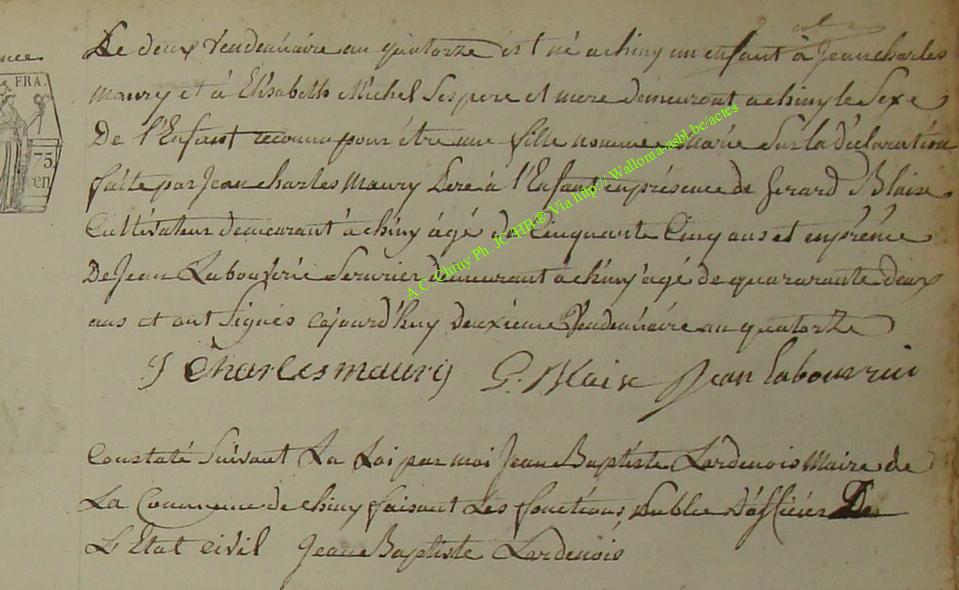 nce
FRA.
75
cen
Le deux vendemiaire an quatorze est né a chiny un enfant à Jean charles
maury et à Elisabeth Michel Ses pere et mere demeurant a chiny le Sexe
De l'Enfant reconnu pour être une fille nommée Marie Sur la déclaration
faite par Jean charles Maury Pere à l'Enfant en présence de Gerard Blaise
Cultivateur demeurant à chiny âgé de Cinquante Cinq ans et en présence
De Jean Labouverie Serurier demeurant a chiny agé de quararante deux
ans et ont Signés aujourd'huy deuxieme Vendemiaire an quatorze
J Charles maury G. Blaise Jean Labouverie
Constaté Suivant La Loi par moi Jean Baptiste Lardenois Maire de
La Commune de chiny faisant Les fonctions Public D'officier De
L'Etat civil Jean Baptiste Lardenois
A.C. Chiny Ph. JC. HB.® Via http:// Wallonia-asbl.be/actes